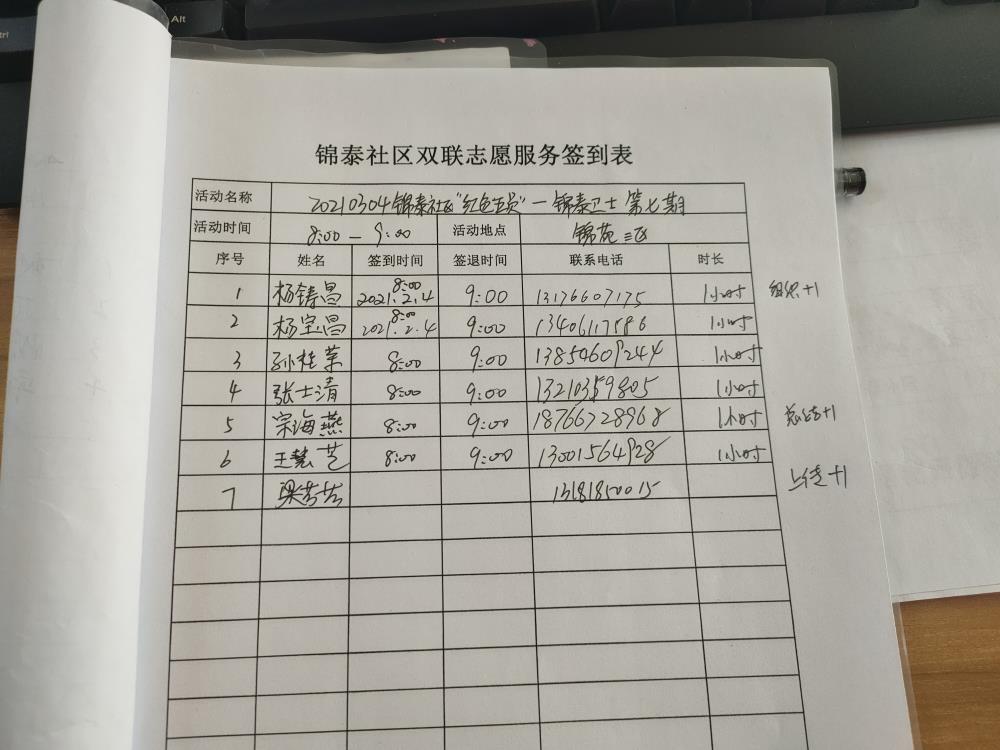 Alt
锦泰社区双联志愿服务签到表
活动名称 20210304锦泰社区"红色生员"—锦泰卫士 第七期
活动时间 8:00 — 9:00 活动地点 锦苑三区
序号 姓名 签到时间 签退时间 联系电话 时长
1 杨铸昌 8:00 2021.2.4 9:00 13176607175 1小时 组织+1
2 杨宝昌 8:00 2021.2.4 9:00 13406117586 1小时
3 孙桂荣 8:00 9:00 13854609244 1小时
4 张士清 8:00 9:00 13210359805 1小时
5 宗海燕 8:00 9:00 18766728968 1小时 总结+1
6 王慧芝 8:00 9:00 13001564928 1小时
7 梁芳芳 13181850015 上传+1